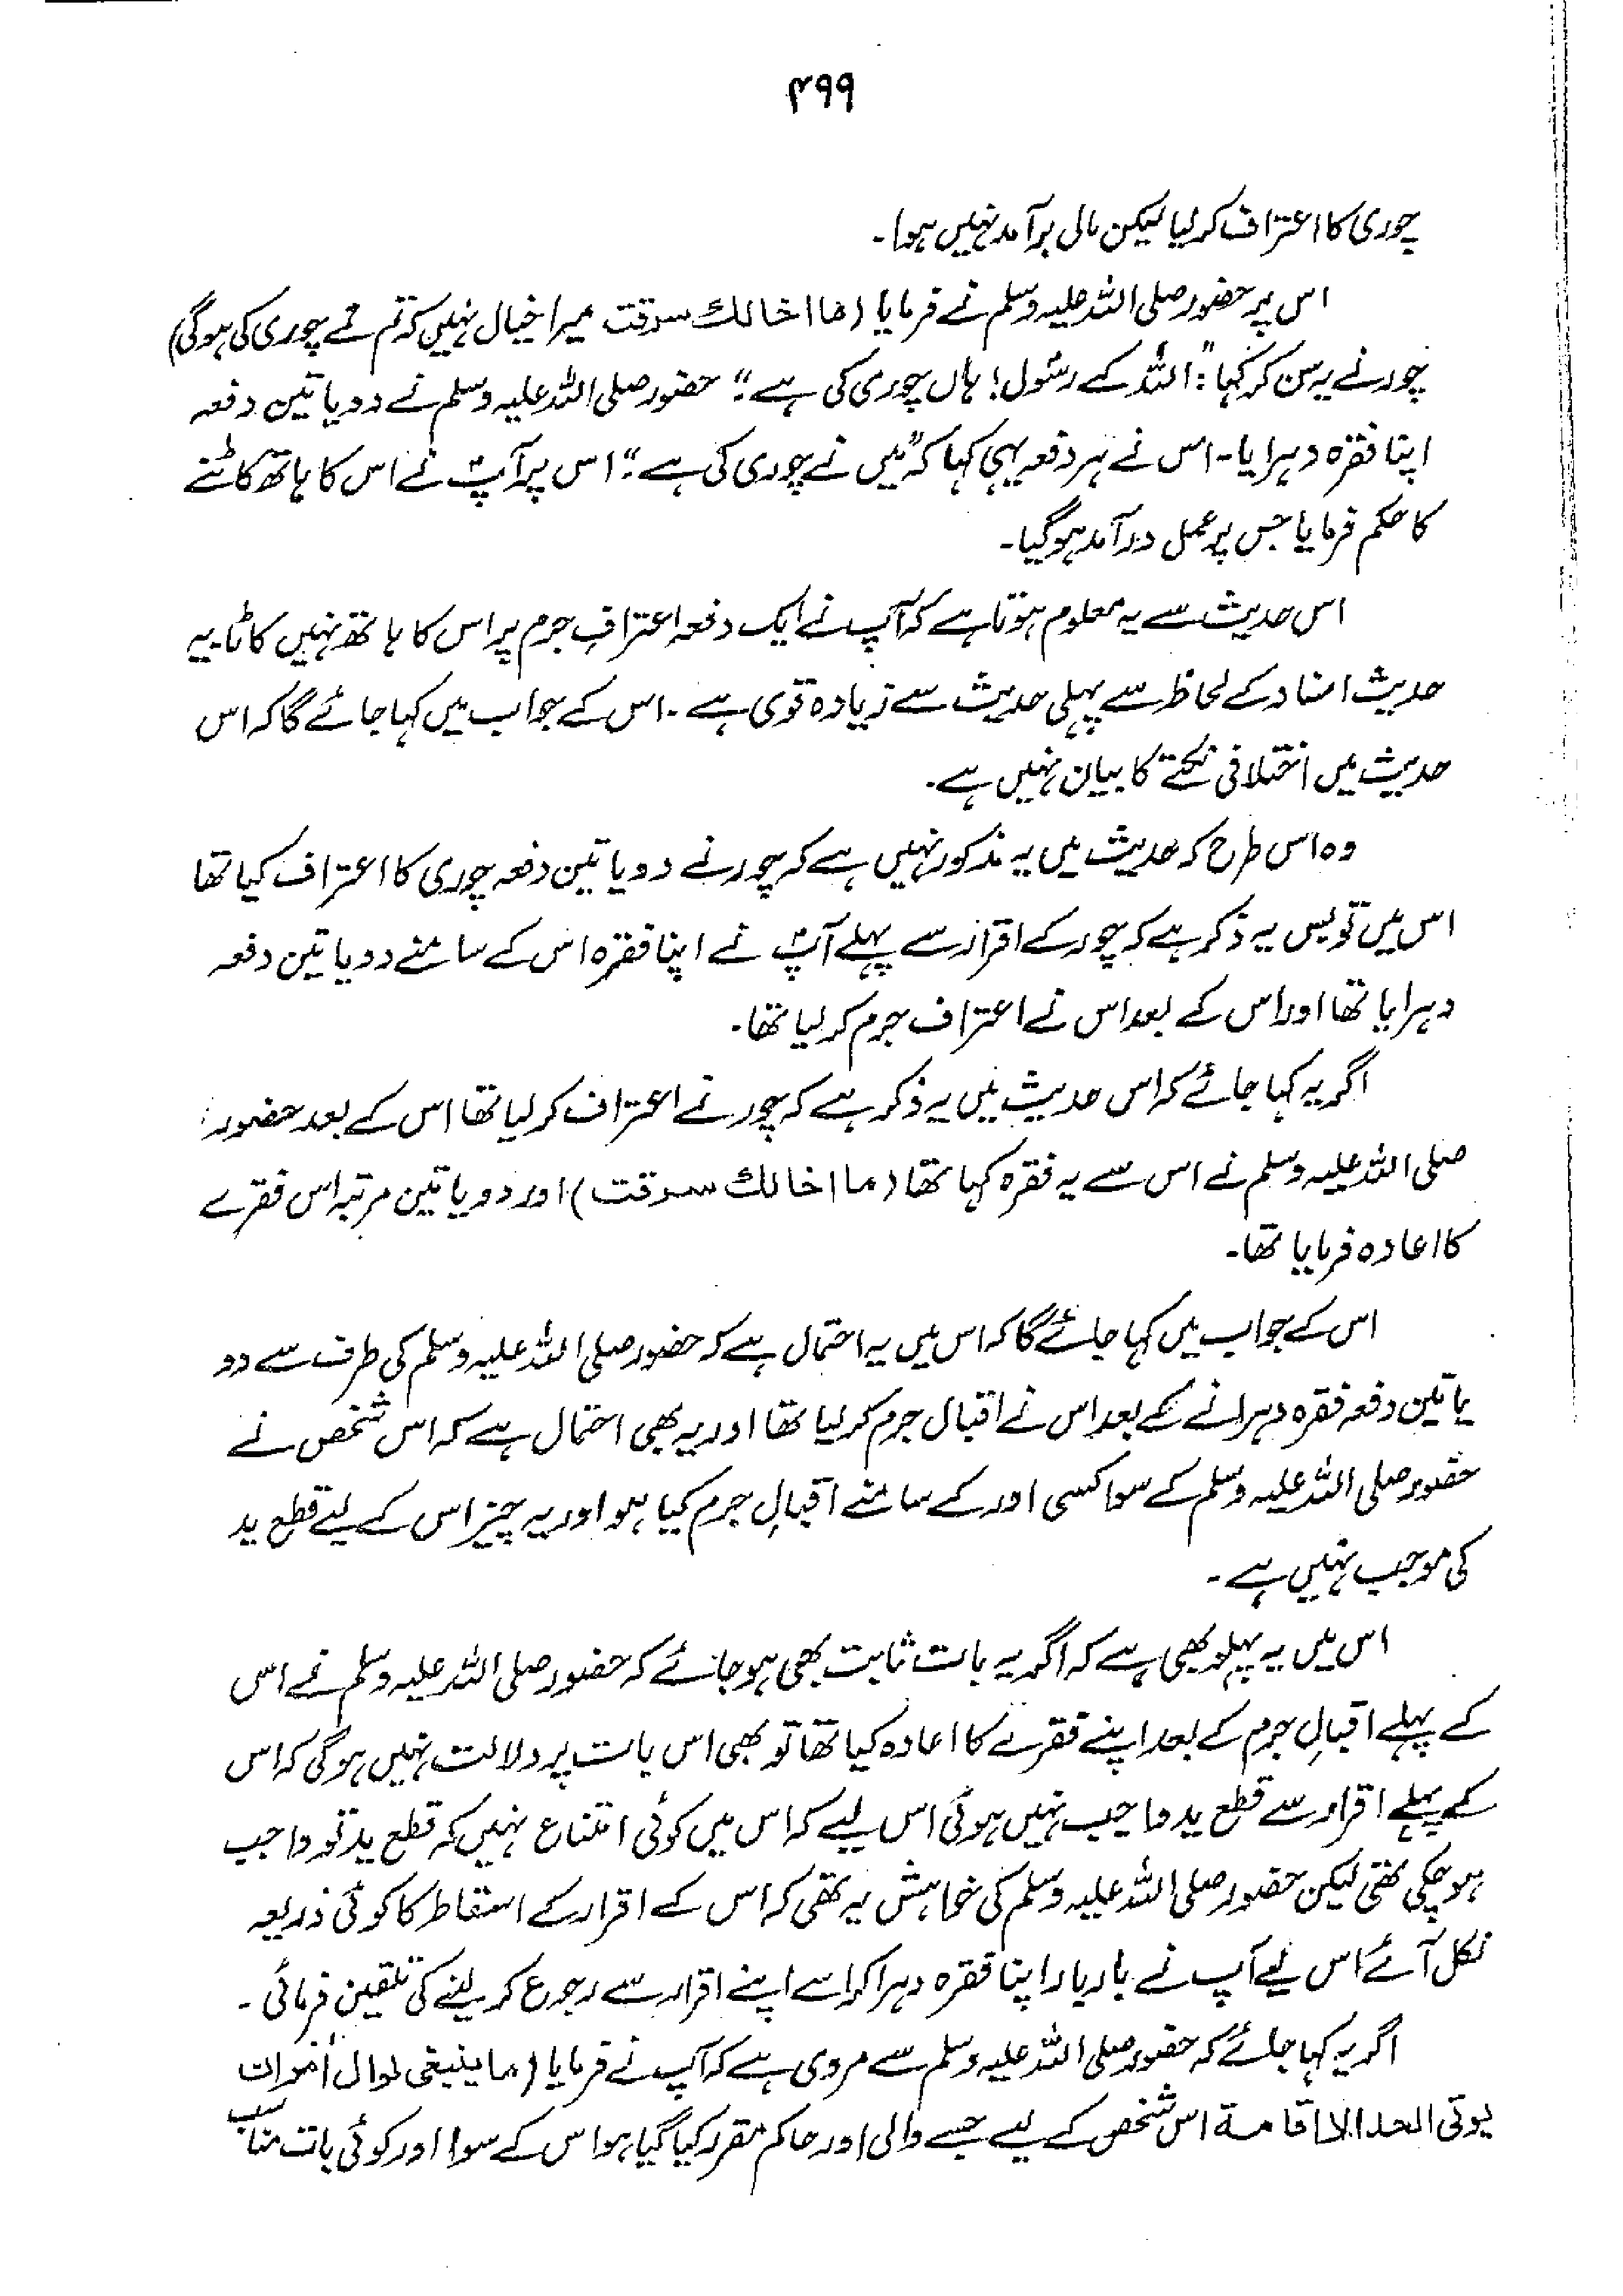 ۴۹۹
چوری کا اعتراف کر لیا لیکن مال برآمد نہیں ہوا۔
اس پر حضور صلی اللہ علیہ وسلم نے فرمایا (ما اخالك سرقت میرا خیال نہیں کہ تم نے چوری کی ہوگی)
چور نے یہ سن کر کہا: "اللہ کے رسول! ہاں چوری کی ہے" حضور صلی اللہ علیہ وسلم نے دو یا تین دفعہ
اپنا فقرہ دہرایا۔ اس نے ہر دفعہ یہی کہا کہ "میں نے چوری کی ہے" اس پر آپؐ نے اس کا ہاتھ کاٹنے
کا حکم فرمایا جس پر عمل درآمد ہوگیا۔
اس حدیث سے یہ معلوم ہوتا ہے کہ آپ نے ایک دفعہ اعترافِ جرم پر اس کا ہاتھ نہیں کاٹا۔ یہ
حدیث اسناد کے لحاظ سے پہلی حدیث سے زیادہ قوی ہے۔ اس کے جواب میں کہا جائے گا کہ اس
حدیث میں اختلافی نکتے کا بیان نہیں ہے۔
وہ اس طرح کہ حدیث میں یہ مذکور نہیں ہے کہ چور نے دو یا تین دفعہ چوری کا اعتراف کیا تھا
اس میں تو بس یہ ذکر ہے کہ چور کے اقرار سے پہلے آپؐ نے اپنا فقرہ اس کے سامنے دو یا تین دفعہ
دہرایا تھا اور اس کے بعد اس نے اعتراف جرم کر لیا تھا۔
اگر یہ کہا جائے کہ اس حدیث میں یہ ذکر ہے کہ چور نے اعتراف کر لیا تھا اس کے بعد حضور
صلی اللہ علیہ وسلم نے اس سے یہ فقرہ کہا تھا (ما اخالك سرقت) اور دو یا تین مرتبہ اس فقرے
کا اعادہ فرمایا تھا۔
اس کے جواب میں کہا جائے گا کہ اس میں یہ احتمال ہے کہ حضور صلی اللہ علیہ وسلم کی طرف سے دو
یا تین دفعہ فقرہ دہرانے کے بعد اس نے اقبال جرم کر لیا تھا اور یہ بھی احتمال ہے کہ اس شخص نے
حضور صلی اللہ علیہ وسلم کے سوا کسی اور کے سامنے اقبالِ جرم کیا ہو اور یہ چیز اس کے لیے قطع ید
کی موجب نہیں ہے۔
اس میں یہ پہلو بھی ہے کہ اگر یہ بات ثابت بھی ہوجائے کہ حضور صلی اللہ علیہ وسلم نے اس
کے پہلے اقبالِ جرم کے بعد اپنے فقرے کا اعادہ کیا تھا تو بھی اس بات پر دلالت نہیں ہوگی کہ اس
کے پہلے اقرار سے قطع ید واجب نہیں ہوئی اس لیے کہ اس میں کوئی امتناع نہیں کہ قطع ید تو واجب
ہوچکی تھی لیکن حضور صلی اللہ علیہ وسلم کی خواہش یہ تھی کہ اس کے اقرار کے اسقاط کا کوئی ذریعہ
نکل آئے اس لیے آپ نے بار بار اپنا فقرہ دہرا کر اسے اپنے اقرار سے رجوع کر لینے کی تلقین فرمائی۔
اگر یہ کہا جائے کہ حضور صلی اللہ علیہ وسلم سے مروی ہے کہ آپ نے فرمایا (ما ینبغی لوال أمر ان
یوتی الحد الا اقامة اس شخص کے لیے جسے والی اور حاکم مقرر کیا گیا ہو اس کے سوا اور کوئی بات مناسب